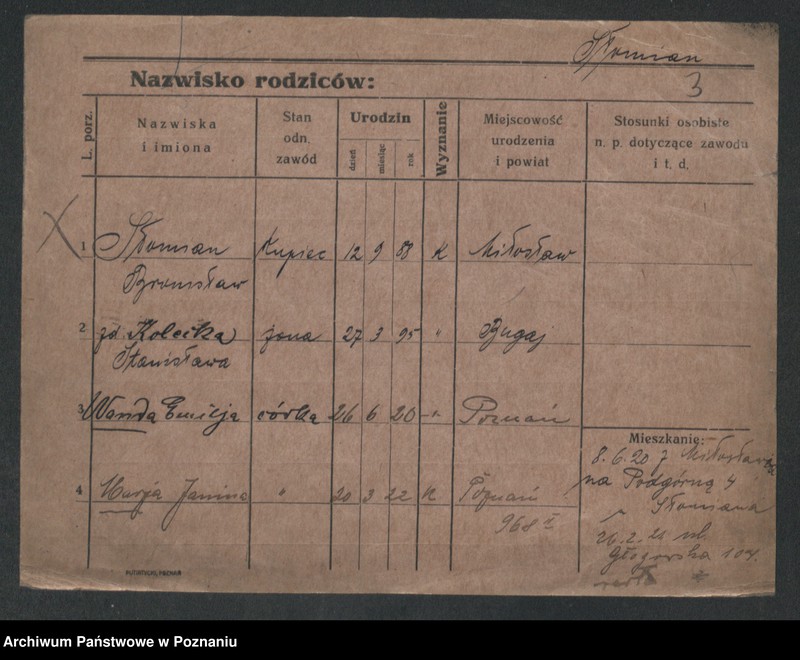 Słomian
3
Nazwisko rodziców:
L. porz.
Nazwiska
i imiona
Stan
odn.
zawód
Urodzin
dzień
miesiąc
rok
Wyznanie
Miejscowość
urodzenia
i powiat
Stosunki osobiste
n. p. dotyczące zawodu
i t. d.
1 Słomian Kupiec 12 9 88 K Miłosław
Bronisław
2 zd. Kolecka żona 27 3 95 " Bugaj
Stanisława
3 Wanda Emilja córka 26 6 20 " Poznań
4 Marja Janina " 20 3 22 K Poznań
968 II
Mieszkanie:
8.6.20 z Miłosławia
na Podgórną 4
Słomiana
26.2.21 ul.
Głogowska 104.
PUTIATYCKI, POZNAŃ
Archiwum Państwowe w Poznaniu